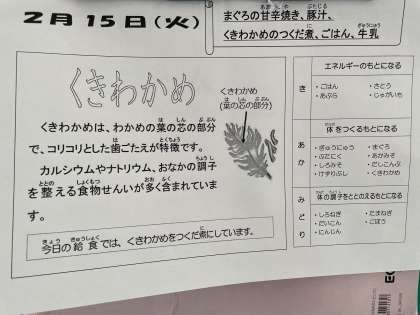 2月15日(火)
まぐろの甘辛焼き、豚汁、
くきわかめのつくだ煮、ごはん、牛乳
くきわかめ
くきわかめ
(葉の芯の部分)
くきわかめは、わかめの葉の芯の部分
で、コリコリとした歯ごたえが特徴です。
カルシウムやナトリウム、おなかの調子
を整える食物せんいが多く含まれていま
す。
今日の給食では、くきわかめをつくだ煮にしています。
エネルギーのもとになる
き
・ごはん ・さとう
・あぶら ・じゃがいも
体をつくるもとになる
あか
・ぎゅうにゅう ・まぐろ
・ぶたにく ・あかみそ
・しろみそ ・だしこんぶ
・けずりぶし ・くきわかめ
体の調子をととのえるもとになる
みどり
・しろねぎ ・たまねぎ
・だいこん ・ごぼう
・にんじん